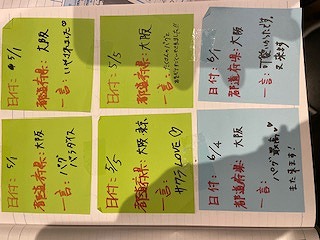 日付: 5/1
都道府県: 大阪
一言: いやされました♡
日付: 5/5
都道府県: 大阪
一言:
日付: 6/1
都道府県: 大阪
一言: 可愛いかったです。
又来ます
日付: 5/1
都道府県: 大阪
一言: パグ
パラダイス
日付: 5/5
都道府県: 大阪
一言: サクラLOVE♡
日付: 6/4
都道府県: 大阪
一言:
パグ最高!♥
また来ます!